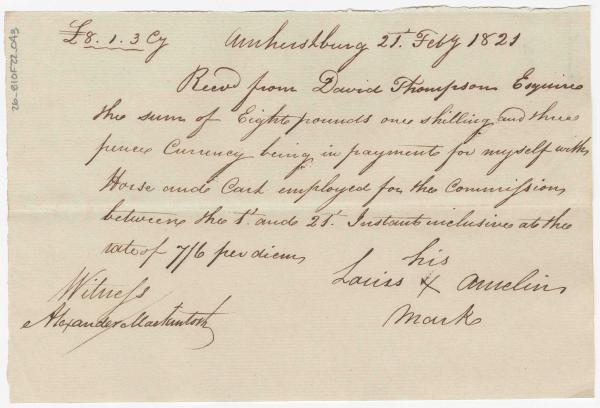 £8.1.3 Cy Amherstburg 21st Feby 1821
Recvd from David Thompson Esquire
the sum of Eight pounds one shilling and three
pence Currency being in payment for myself with
Horse and Cart employed for the Commission
between the 1st and 21st Instant inclusive at the
rate of 7/6 per diem
his
Louis X Amelin
Mark
Witness
Alexander Mackintosh